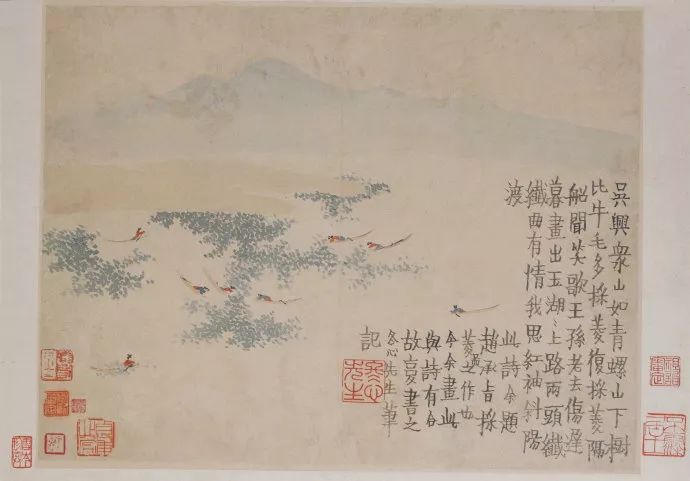 吳興衆山如青螺山下樹
比牛毛多採菱復採菱隔
船聞笑歌王孫老去傷遲
暮畫出玉湖〻上路兩頭纖
纖曲有情我思紅袖斜陽
渡
此詩余題
趙承旨採
菱啚之作也
今余畫此
與詩有合
故更書之
冬心先生筆
記
冬心先生